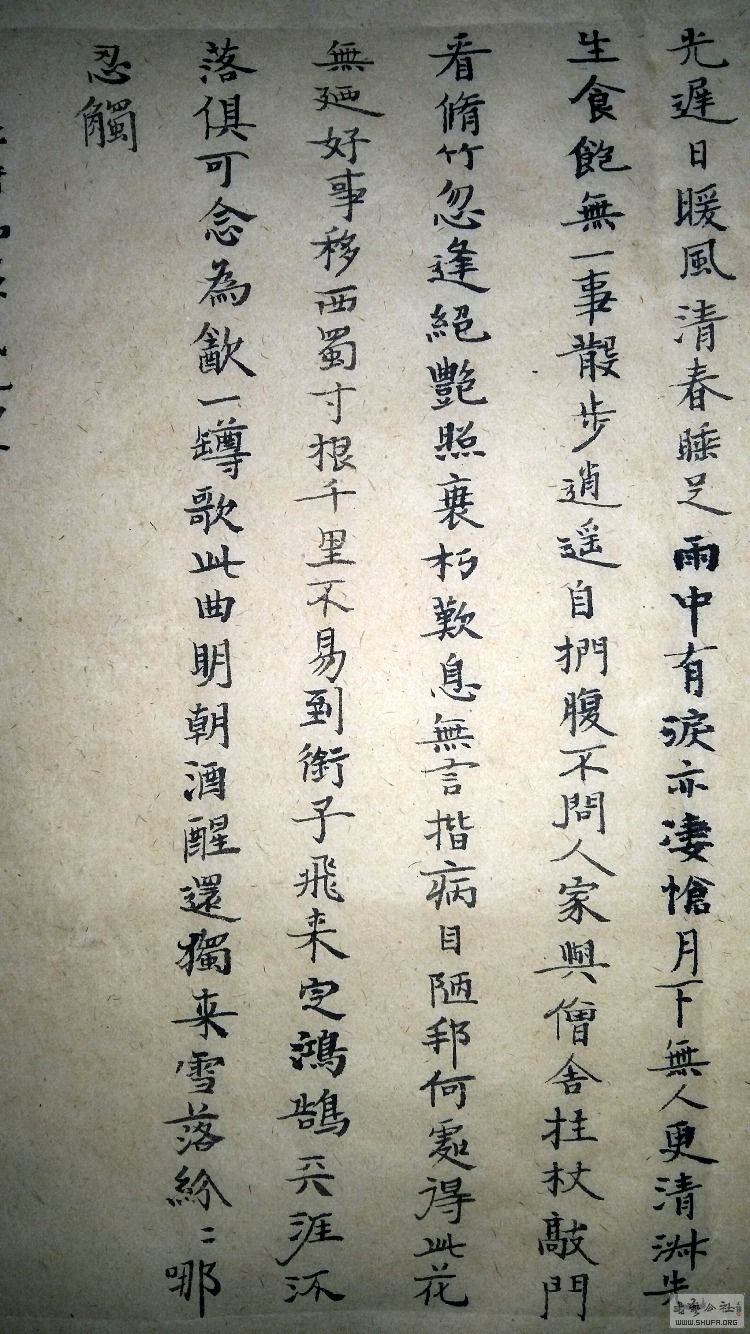 光遲日暖風清春睡足雨中有淚亦凄愴月下無人更清淋先
生食飽無一事散步逍遥自捫腹不問人家與僧舍拄杖敲門
看脩竹忽逢絕艷照衰朽歎息無言揩病目陋邦何處得此花
無廼好事移西蜀寸根千里不易到銜子飛来定鴻鵠天涯
落俱可念為飲一罇歌此曲明朝酒醒還獨来雪落紛〻哪
忍觸
WWW.SHUFA.ORG